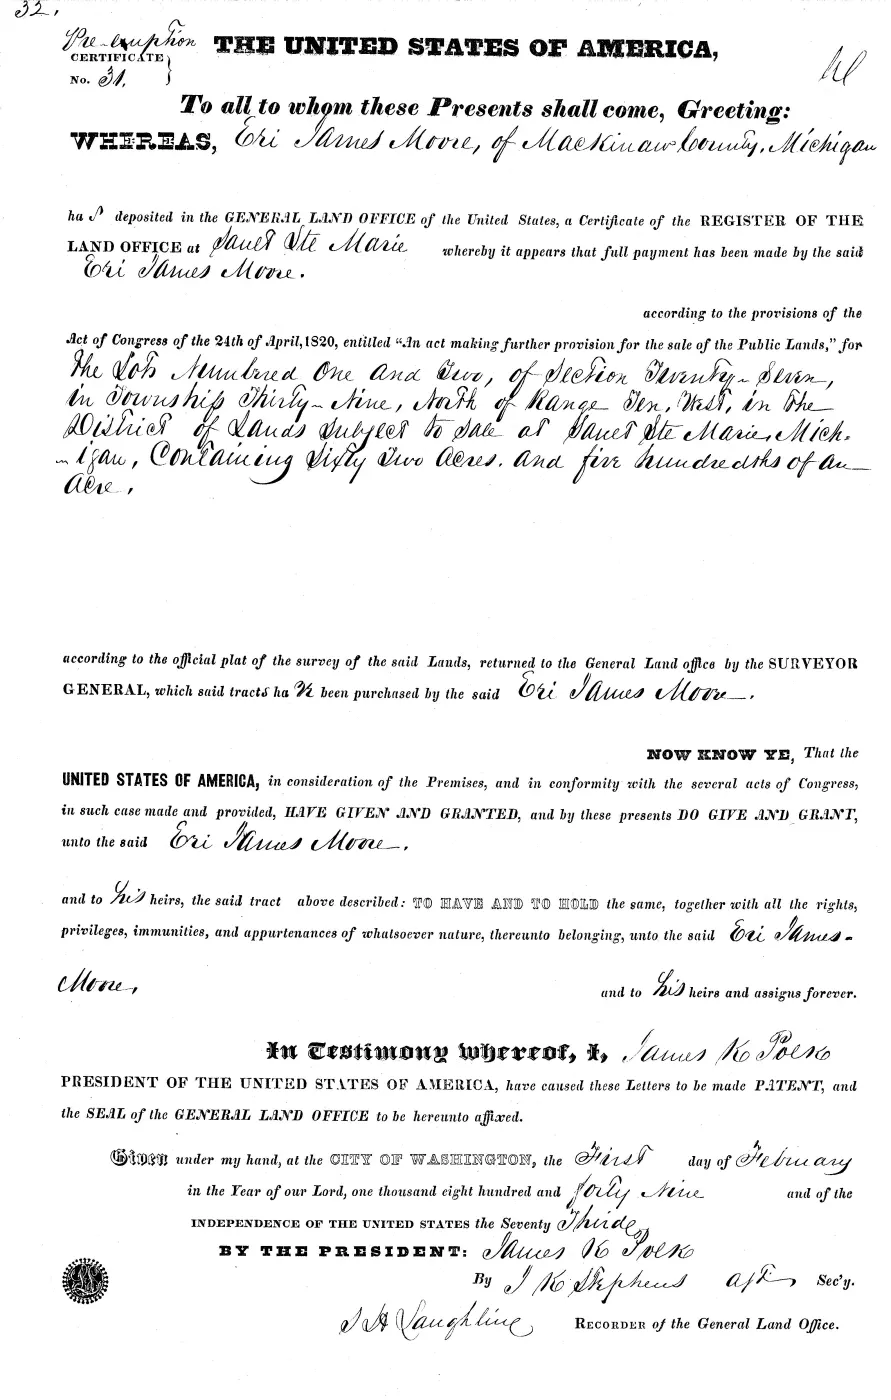 32.
Pre-emption
CERTIFICATE
No. 31.
THE UNITED STATES OF AMERICA,
To all to whom these Presents shall come, Greeting:
WHEREAS, Eri James Moore, of Mackinaw County, Michigan
ha s deposited in the GENERAL LAND OFFICE of the United States, a Certificate of the REGISTER OF THE
LAND OFFICE at Sault Ste Marie whereby it appears that full payment has been made by the said
Eri James Moore.
according to the provisions of the
Act of Congress of the 24th of April, 1820, entitled “An act making further provision for the sale of the Public Lands,” for
the Lots Numbered One and Two, of Section Twenty-Seven,
in Township Thirty-Nine, North of Range Ten, West, in the
District of Lands Subject to Sale at Sault Ste Marie, Mich-
-igan, Containing Sixty Two Acres. and five hundredths of an
Acre.
according to the official plat of the survey of the said Lands, returned to the General Land office by the SURVEYOR
GENERAL, which said tracts ha ve been purchased by the said Eri James Moore.
NOW KNOW YE, That the
UNITED STATES OF AMERICA, in consideration of the Premises, and in conformity with the several acts of Congress,
in such case made and provided, HAVE GIVEN AND GRANTED, and by these presents DO GIVE AND GRANT,
unto the said Eri James Moore.
and to his heirs, the said tract above described: TO HAVE AND TO HOLD the same, together with all the rights,
privileges, immunities, and appurtenances of whatsoever nature, thereunto belonging, unto the said Eri James-
Moore, and to his heirs and assigns forever.
In Testimony whereof, I, James K Polk
PRESIDENT OF THE UNITED STATES OF AMERICA, have caused these Letters to be made PATENT, and
the SEAL of the GENERAL LAND OFFICE to be hereunto affixed.
Given under my hand, at the CITY OF WASHINGTON, the First day of February
in the Year of our Lord, one thousand eight hundred and forty Nine and of the
INDEPENDENCE OF THE UNITED STATES the Seventy Third
BY THE PRESIDENT: James K Polk
By J K Stephens Sec'y.
S H Laughline RECORDER of the General Land Office.